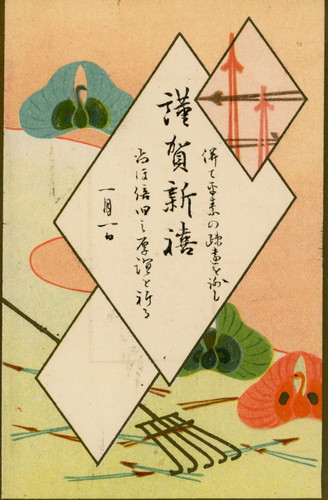 謹賀新禧
併て平素の疎遠を謝し
尚ほ倍旧之厚誼を祈る
一月一日